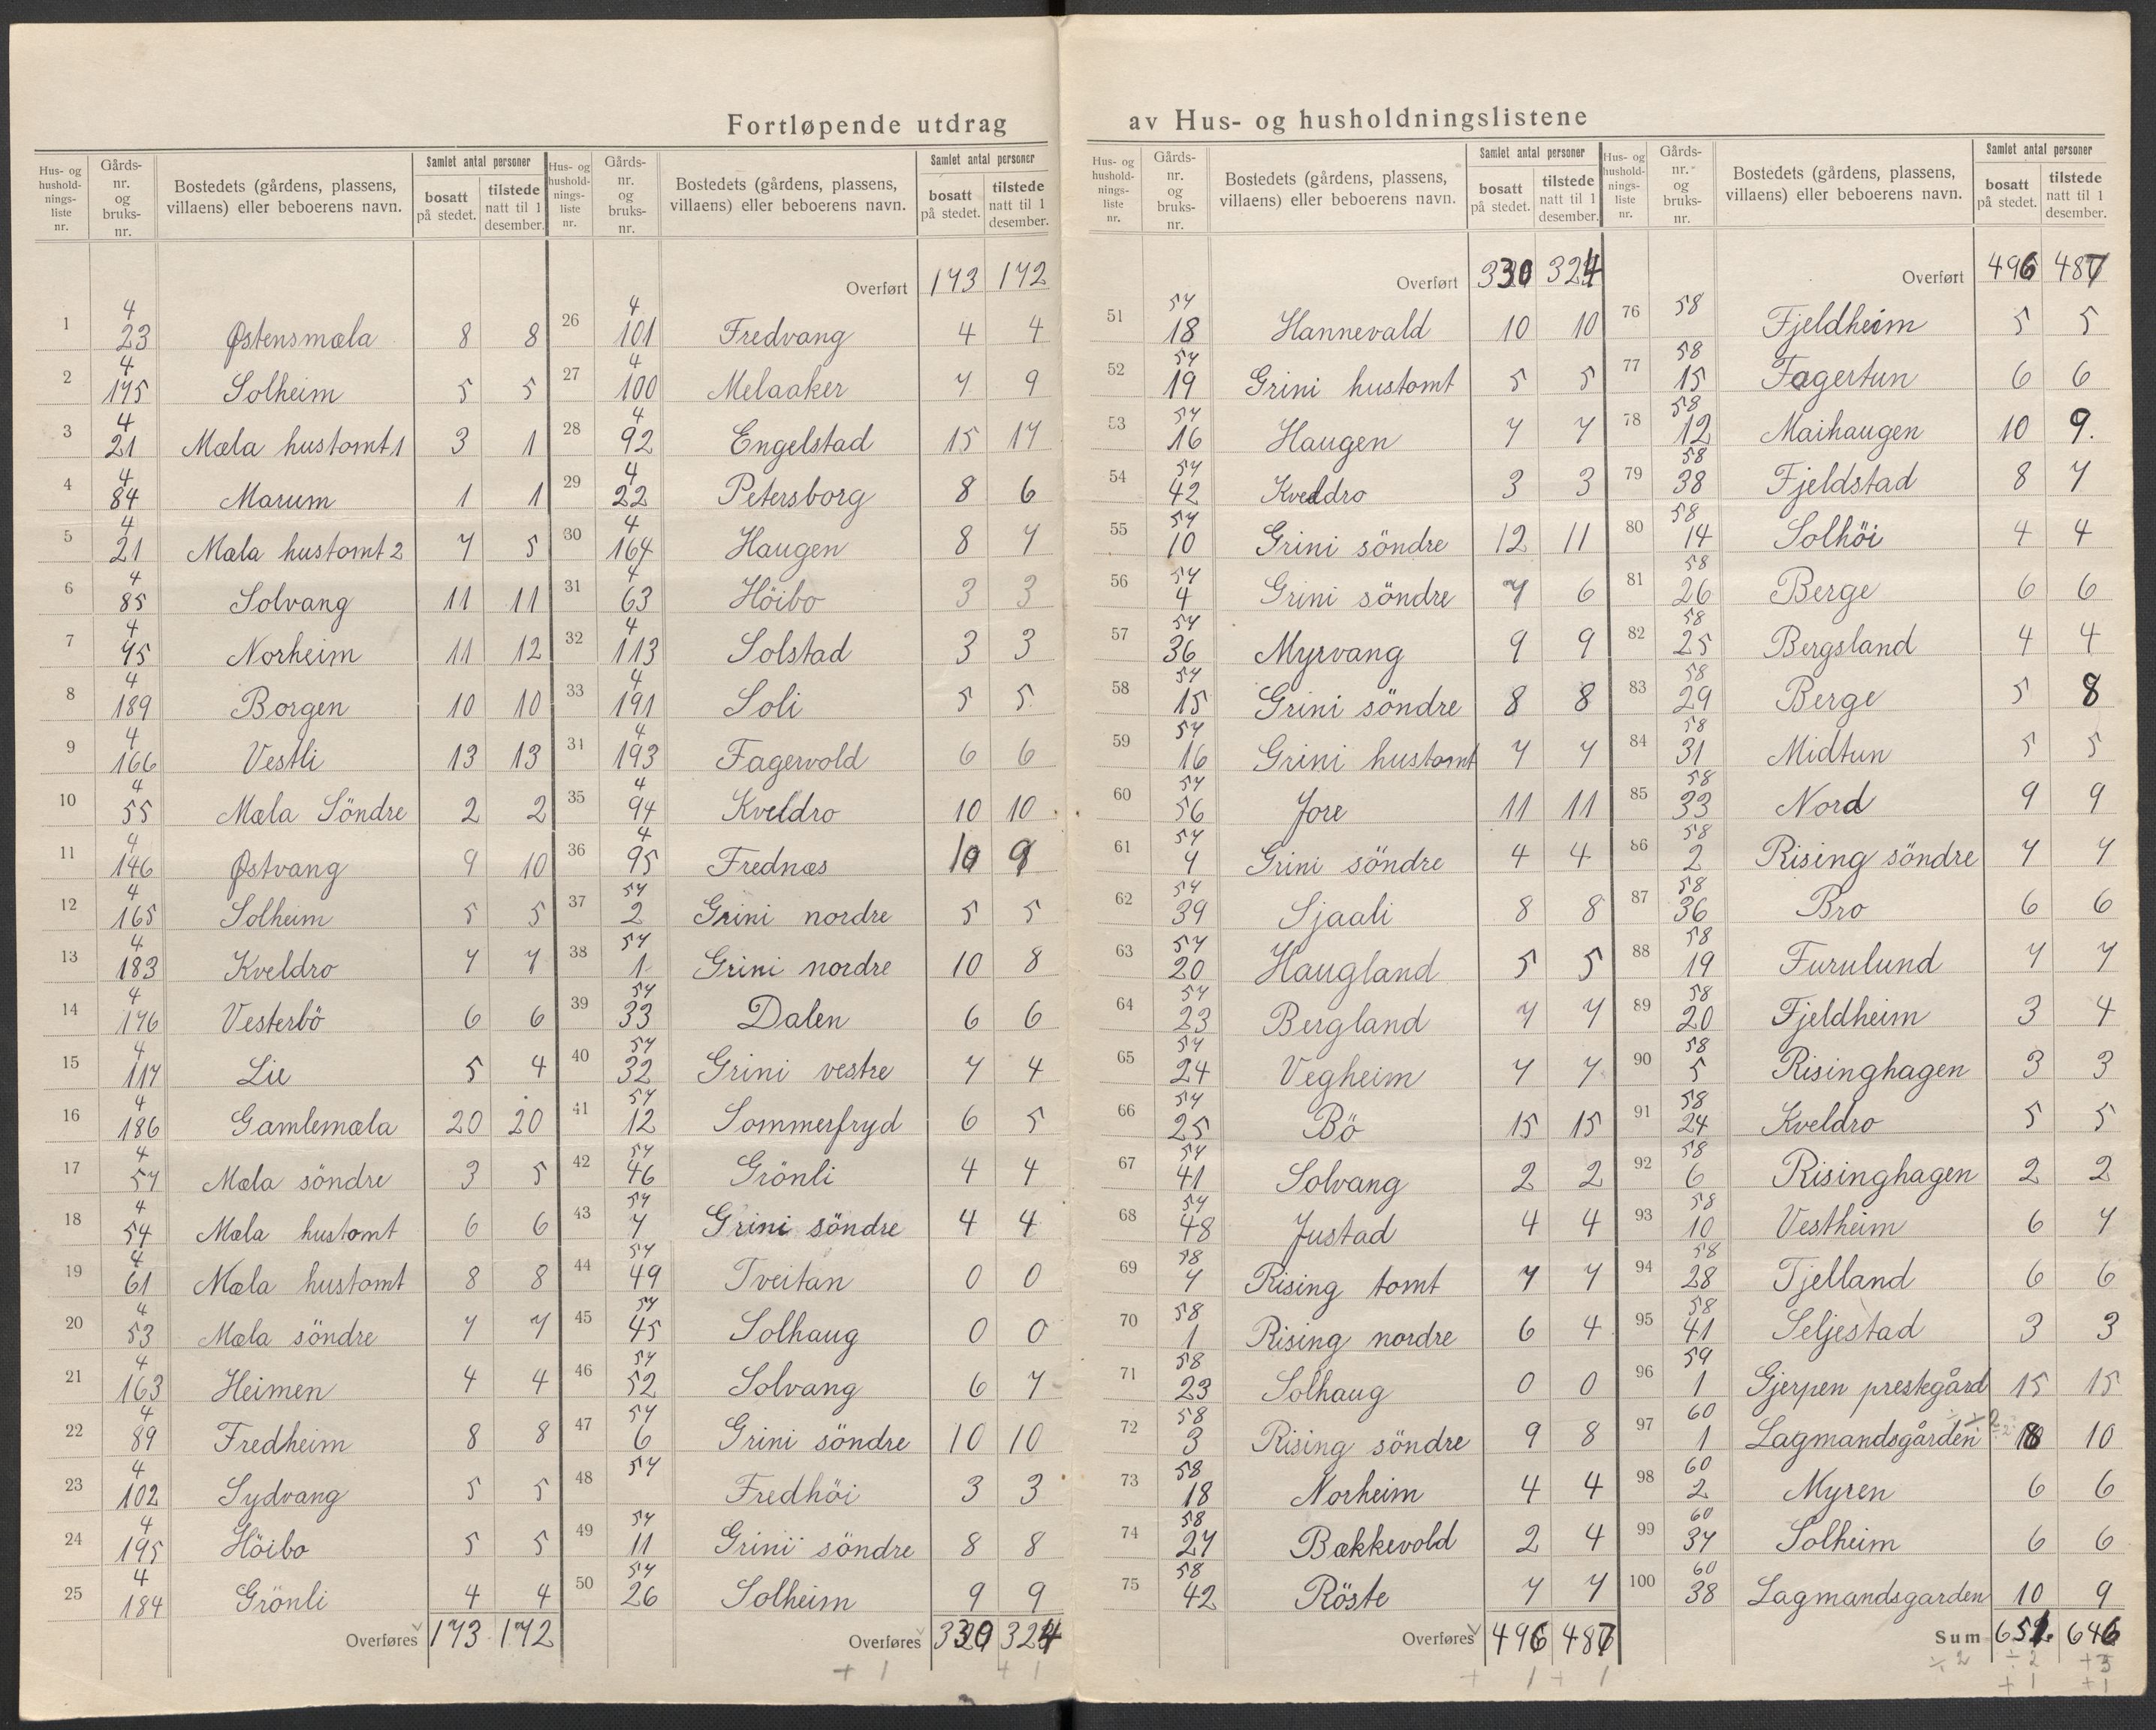 Fortløpende utdrag av Hus- og husholdningslistene
Hus- og husholdningsliste nr. | Gårdsnr. og bruksnr. | Bostedets (gårdens, plassens, villaens) eller beboerens navn. | Samlet antal personer bosatt på stedet. | tilstede natt til 1 desember.
1 | 4 23 | Østensmæla | 8 | 8
2 | 4 175 | Solheim | 5 | 5
3 | 4 21 | Mæla hustomt 1 | 3 | 1
4 | 4 84 | Marum | 1 | 1
5 | 4 21 | Mæla hustomt 2 | 7 | 5
6 | 4 85 | Solvang | 11 | 11
7 | 4 75 | Norheim | 11 | 12
8 | 4 189 | Borgen | 10 | 10
9 | 4 166 | Vestli | 13 | 13
10 | 4 55 | Mæla Söndre | 2 | 2
11 | 4 146 | Østvang | 9 | 10
12 | 4 165 | Solheim | 5 | 5
13 | 4 183 | Kveldro | 7 | 7
14 | 4 176 | Vesterbö | 6 | 6
15 | 4 117 | Lie | 5 | 4
16 | 4 186 | Gamlemæla | 20 | 20
17 | 4 57 | Mæla söndre | 3 | 5
18 | 4 54 | Mæla hustomt | 6 | 6
19 | 4 61 | Mæla hustomt | 8 | 8
20 | 4 53 | Mæla söndre | 7 | 7
21 | 4 163 | Heimen | 4 | 4
22 | 4 89 | Fredheim | 8 | 8
23 | 4 102 | Sydvang | 5 | 5
24 | 4 195 | Höibo | 5 | 5
25 | 4 184 | Grönli | 4 | 4
Overføres 173 | 172
Hus- og husholdningsliste nr. | Gårdsnr. og bruksnr. | Bostedets (gårdens, plassens, villaens) eller beboerens navn. | Samlet antal personer bosatt på stedet. | tilstede natt til 1 desember.
Overført 173 | 172
26 | 4 101 | Fredvang | 4 | 4
27 | 4 100 | Melaaker | 7 | 9
28 | 4 92 | Engelstad | 15 | 17
29 | 4 22 | Petersborg | 8 | 6
30 | 4 164 | Haugen | 8 | 7
31 | 4 63 | Höibo | 3 | 3
32 | 4 113 | Solstad | 3 | 3
33 | 4 191 | Soli | 5 | 5
31 | 4 193 | Fagervold | 6 | 6
35 | 4 94 | Kveldro | 10 | 10
36 | 4 95 | Frednæs | 10 | 9
37 | 57 2 | Grini nordre | 5 | 5
38 | 57 1 | Grini nordre | 10 | 8
39 | 57 33 | Dalen | 6 | 6
40 | 57 32 | Grini vestre | 7 | 4
41 | 57 12 | Sommerfryd | 6 | 5
42 | 57 46 | Grönli | 4 | 4
43 | 57 7 | Grini söndre | 4 | 4
44 | 57 49 | Tveitan | 0 | 0
45 | 57 45 | Solhaug | 0 | 0
46 | 57 52 | Solvang | 6 | 7
47 | 57 6 | Grini söndre | 10 | 10
48 | 57 | Fredhöi | 3 | 3
49 | 57 11 | Grini söndre | 8 | 8
50 | 57 26 | Solheim | 9 | 9
Overføres 330 | 324
+ 1 | + 1
Hus- og husholdningsliste nr. | Gårdsnr. og bruksnr. | Bostedets (gårdens, plassens, villaens) eller beboerens navn. | Samlet antal personer bosatt på stedet. | tilstede natt til 1 desember.
Overført 330 | 324
51 | 57 18 | Hannevald | 10 | 10
52 | 57 19 | Grini hustomt | 5 | 5
53 | 57 16 | Haugen | 7 | 7
54 | 57 42 | Kveldro | 3 | 3
55 | 57 10 | Grini söndre | 12 | 11
56 | 57 4 | Grini söndre | 7 | 6
57 | 57 36 | Myrvang | 9 | 9
58 | 57 15 | Grini söndre | 8 | 8
59 | 57 16 | Grini hustomt | 7 | 7
60 | 57 56 | Jore | 11 | 11
61 | 57 9 | Grini söndre | 4 | 4
62 | 57 39 | Sjaali | 8 | 8
63 | 57 20 | Haugland | 5 | 5
64 | 57 23 | Bergland | 7 | 7
65 | 57 24 | Vegheim | 7 | 7
66 | 57 25 | Bö | 15 | 15
67 | 57 41 | Solvang | 2 | 2
68 | 57 48 | Justad | 4 | 4
69 | 58 7 | Rising tomt | 7 | 7
70 | 58 1 | Rising nordre | 6 | 4
71 | 58 23 | Solhaug | 0 | 0
72 | 58 3 | Rising söndre | 9 | 8
73 | 58 18 | Norheim | 4 | 4
74 | 58 27 | Bækkevold | 2 | 4
75 | 58 42 | Röste | 7 | 7
Overføres 496 | 487
+ 1 | + 1
Hus- og husholdningsliste nr. | Gårdsnr. og bruksnr. | Bostedets (gårdens, plassens, villaens) eller beboerens navn. | Samlet antal personer bosatt på stedet. | tilstede natt til 1 desember.
Overført 496 | 487
76 | 58 | Fjeldheim | 5 | 5
77 | 58 15 | Fagertun | 6 | 6
78 | 58 12 | Maihaugen | 10 | 9.
79 | 58 38 | Fjeldstad | 8 | 7
80 | 58 14 | Solhöi | 4 | 4
81 | 58 26 | Berge | 6 | 6
82 | 58 25 | Bergsland | 4 | 4
83 | 58 29 | Berge | 5 | 8
84 | 58 31 | Midtun | 5 | 5
85 | 58 33 | Nord | 9 | 9
86 | 58 2 | Rising söndre | 7 | 7
87 | 58 36 | Bro | 6 | 6
88 | 58 19 | Furulund | 7 | 7
89 | 58 20 | Fjeldheim | 3 | 4
90 | 58 5 | Risinghagen | 3 | 3
91 | 58 24 | Kveldro | 5 | 5
92 | 58 6 | Risinghagen | 2 | 2
93 | 58 10 | Vestheim | 6 | 7
94 | 58 28 | Tjelland | 6 | 6
95 | 58 41 | Seljestad | 3 | 3
96 | 59 1 | Gjerpen prestegård | 15 | 15
97 | 60 1 | Lagmandsgården ÷ 2 | 8 | 10
98 | 60 2 | Myren | 6 | 6
99 | 60 37 | Solheim | 6 | 6
100 | 60 38 | Lagmandsgarden | 10 | 9
Sum 651 | 646
÷ 2 | ÷ 2 | + 3
+ 1 | + 1